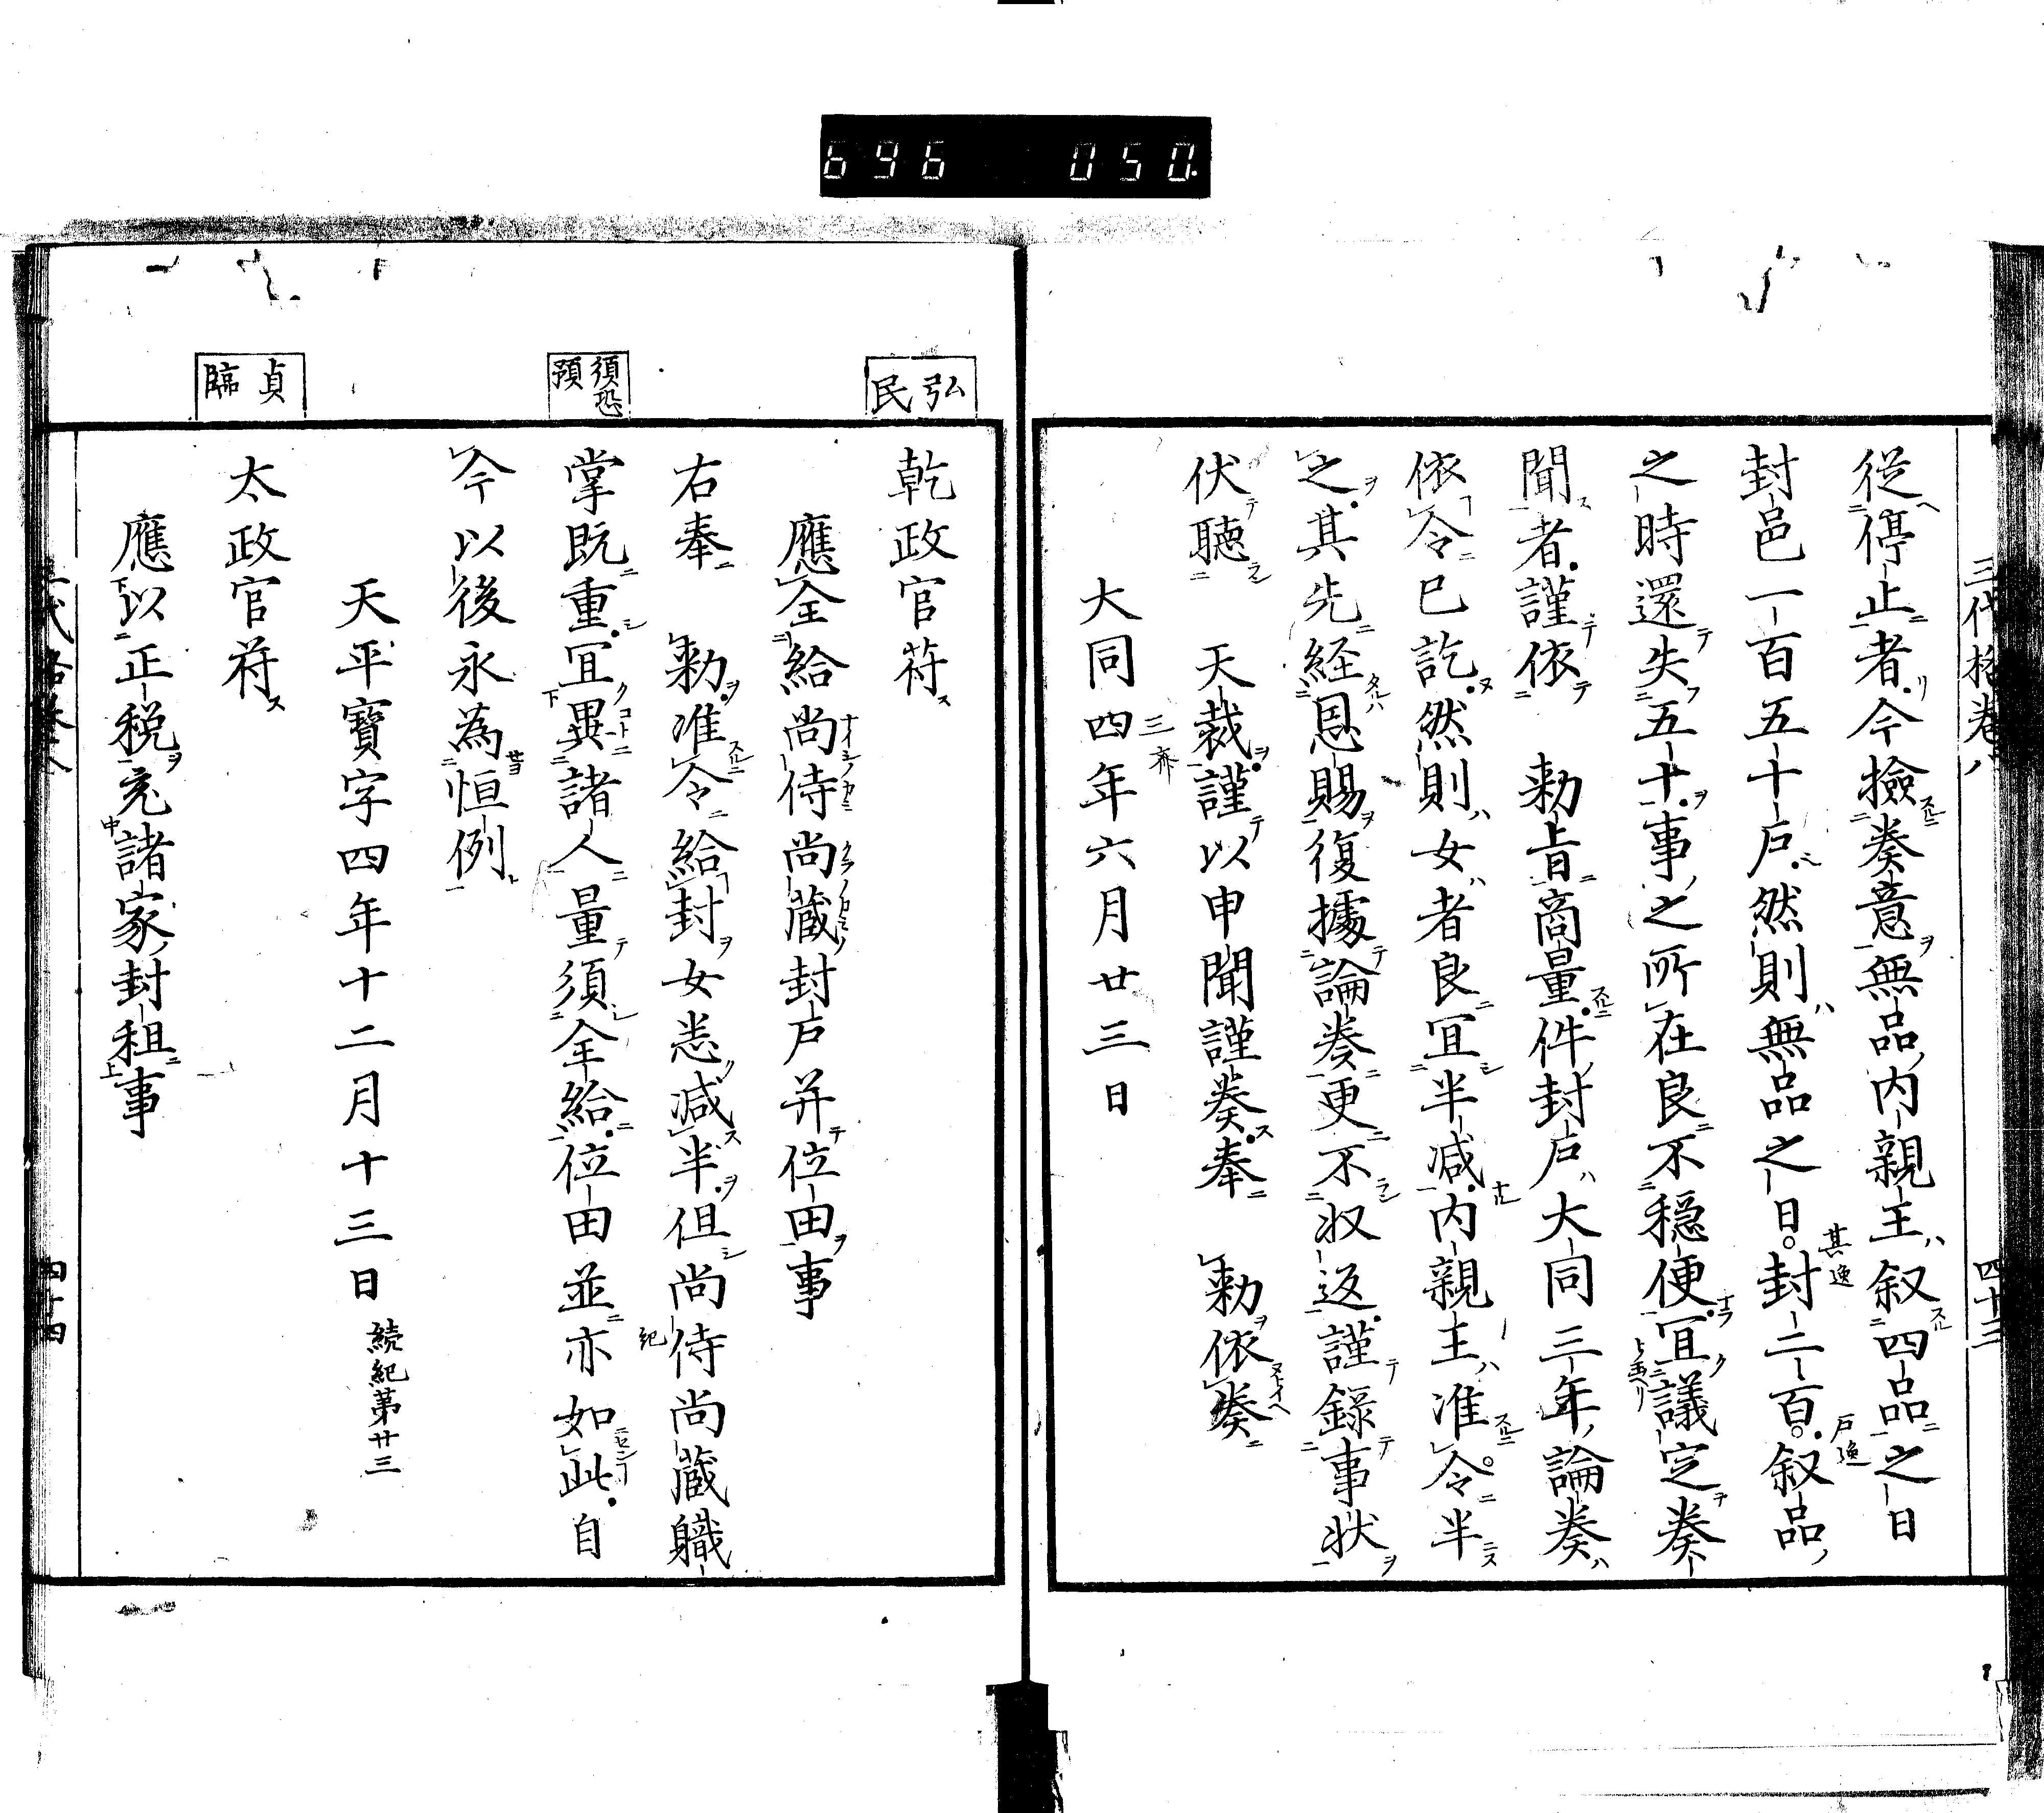 696 050
三代格卷八
四十三
從停止者今撿奏意無品内親王叙四品之日
封邑一百五十戸然則無品之日封二百叙品
其逸
戸逸
之時還失五十事之所在良不穏便冝議定奏
聞者謹依 勅旨商量件封戸大同三年論奏
依令已訖然則女者良冝半減内親王准令半
之其先経恩賜復據論奏更不収返謹録事状
伏聴 天裁謹以申聞謹奏奉 勅依奏
大同四年六月廿三日
三亦
弘
民
乾政官符
應全給尚侍尚蔵封戸并位田事
右奉 勅准令給封女悉減半但尚侍尚蔵職
紀
須恐
預
掌既重冝異諸人量須全給位田並亦如此自
今以後永為恒例
天平寶字四年十二月十三日 続紀第廿三
貞
臨
太政官符
應以正税充諸家封租事
四十四